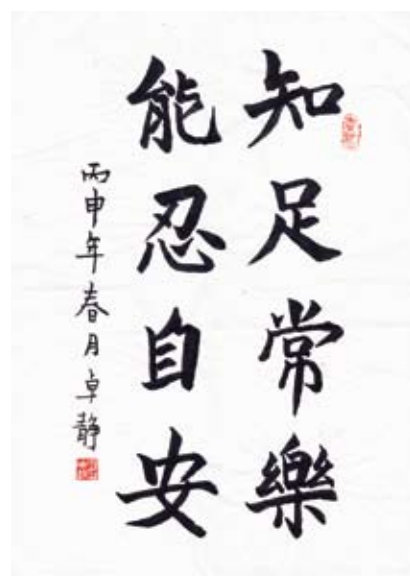 知足常樂
能忍自安
丙申年春月卓靜